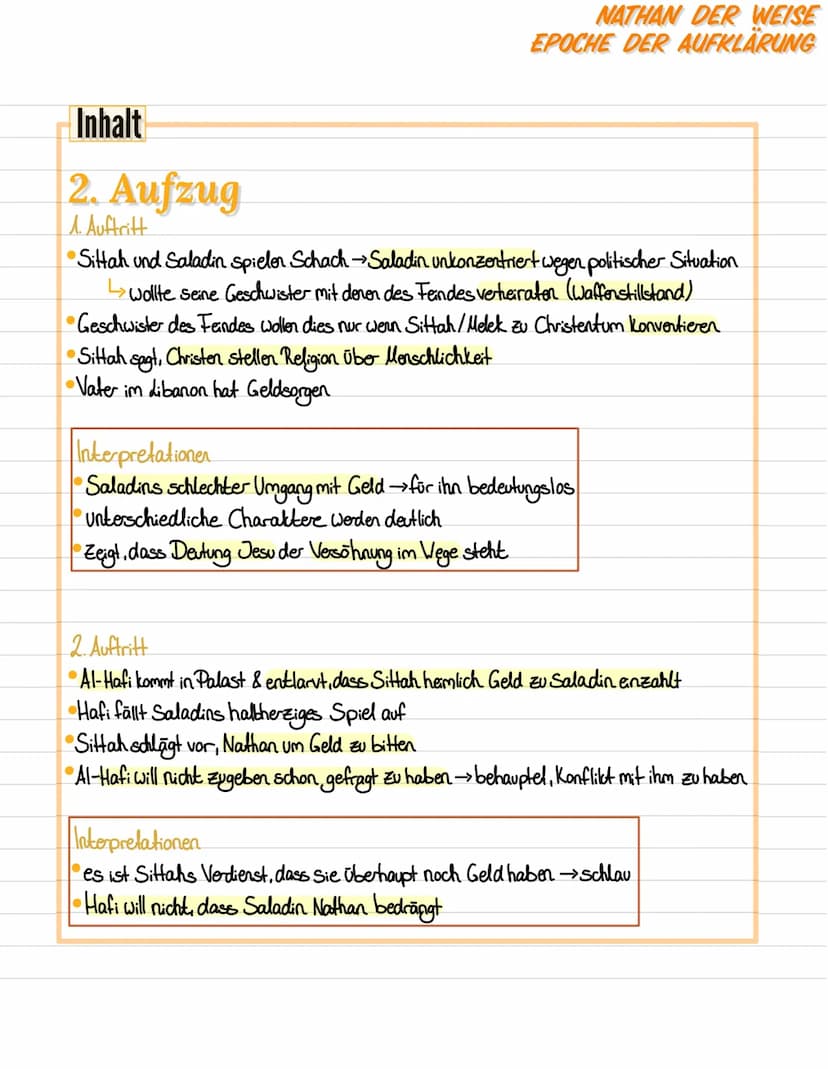 NATHAN DER WEISE
EPOCHE DER AUFKLÄRUNG
Inhalt
2. Aufzug
1. Auftritt
• Sittah und Saladin spielen Schach → Saladin unkonzentriert wegen politischer Situation
↳ wollte seine Geschwister mit denen des Feindes verheiraten (Waffenstillstand)
• Geschwister des Feindes wollen dies nur wenn Sittah/Melek zu Christentum konvertieren
• Sittah sagt, Christen stellen Religion über Menschlichkeit
• Vater im Libanon hat Geldsorgen
Interpretationen
• Saladins schlechter Umgang mit Geld → für ihn bedeutungslos
• unterschiedliche Charaktere werden deutlich
• Zeigt, dass Deutung Jesu der Versöhnung im Wege steht
2. Auftritt
• Al-Hafi kommt in Palast & entlarvt, dass Sittah heimlich Geld zu Saladin einzahlt
• Hafi fällt Saladins halbherziges Spiel auf
• Sittah schlägt vor, Nathan um Geld zu bitten
• Al-Hafi will nicht zugeben schon gefragt zu haben → behauptet, Konflikt mit ihm zu haben
Interpretationen
• es ist Sittahs Verdienst, dass sie überhaupt noch Geld haben → schlau
• Hafi will nicht, dass Saladin Nathan bedrängt